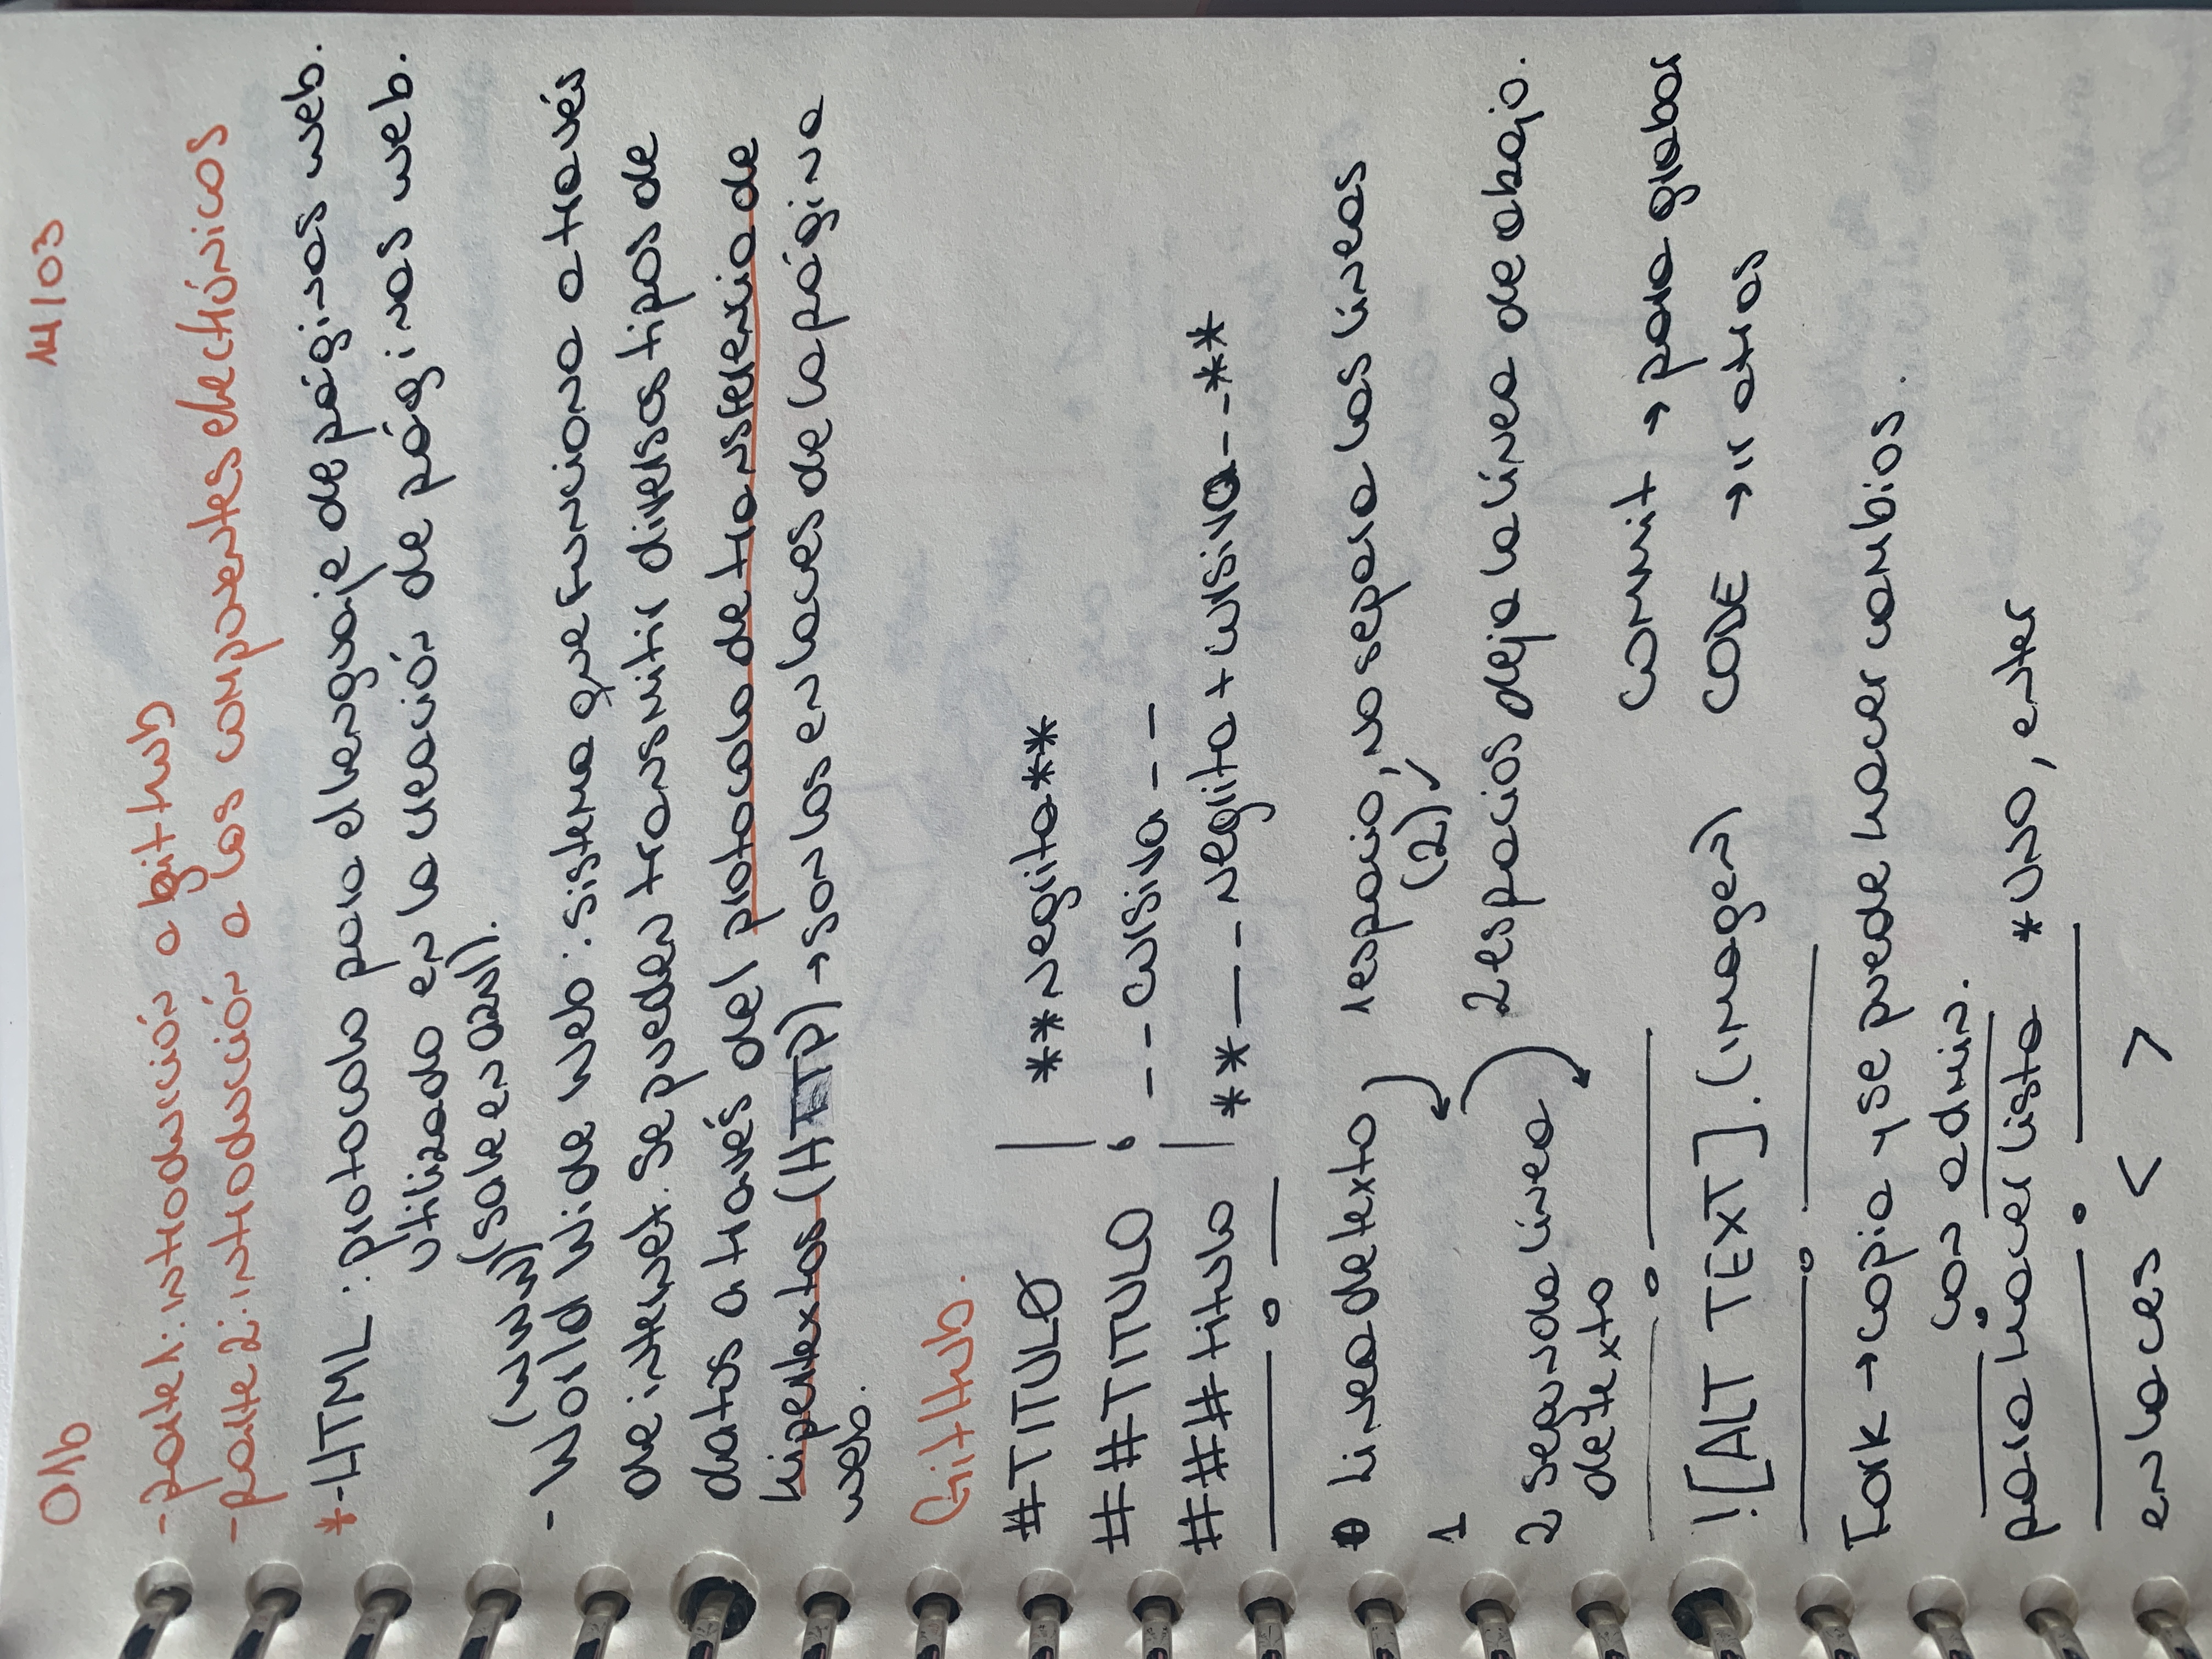 01b
14/03
-parte1: introducción a github
-parte 2: introducción a los componentes electrónicos
*-HTML : protocolo para el lenguaje de páginas web.
utilizado en la creación de páginas web.
(sale en azul).
(WWW)
- World Wide Web : sistema que funciona a través
de internet. Se pueden transmitir diversos tipos de
datos a través del protocolo de transferencia de
hipertextos (HTTP) → son los enlaces de la página
web.
GitHub.
#TITULO | **Negrita**
##TITULO __cursiva__
###titulo | **__Negrita + cursiva__**
0 Linea de texto 1 espacio, no separa las líneas
(2) ✓
1
2 espacios deja la línea de abajo.
2 segunda línea
de texto
commit → para grabar
![ALT TEXT].(imagen) CODE → ir atras
Fork → copia y se puede hacer cambios.
con admin.
para hacer lista *UNO, enter
enlaces < >